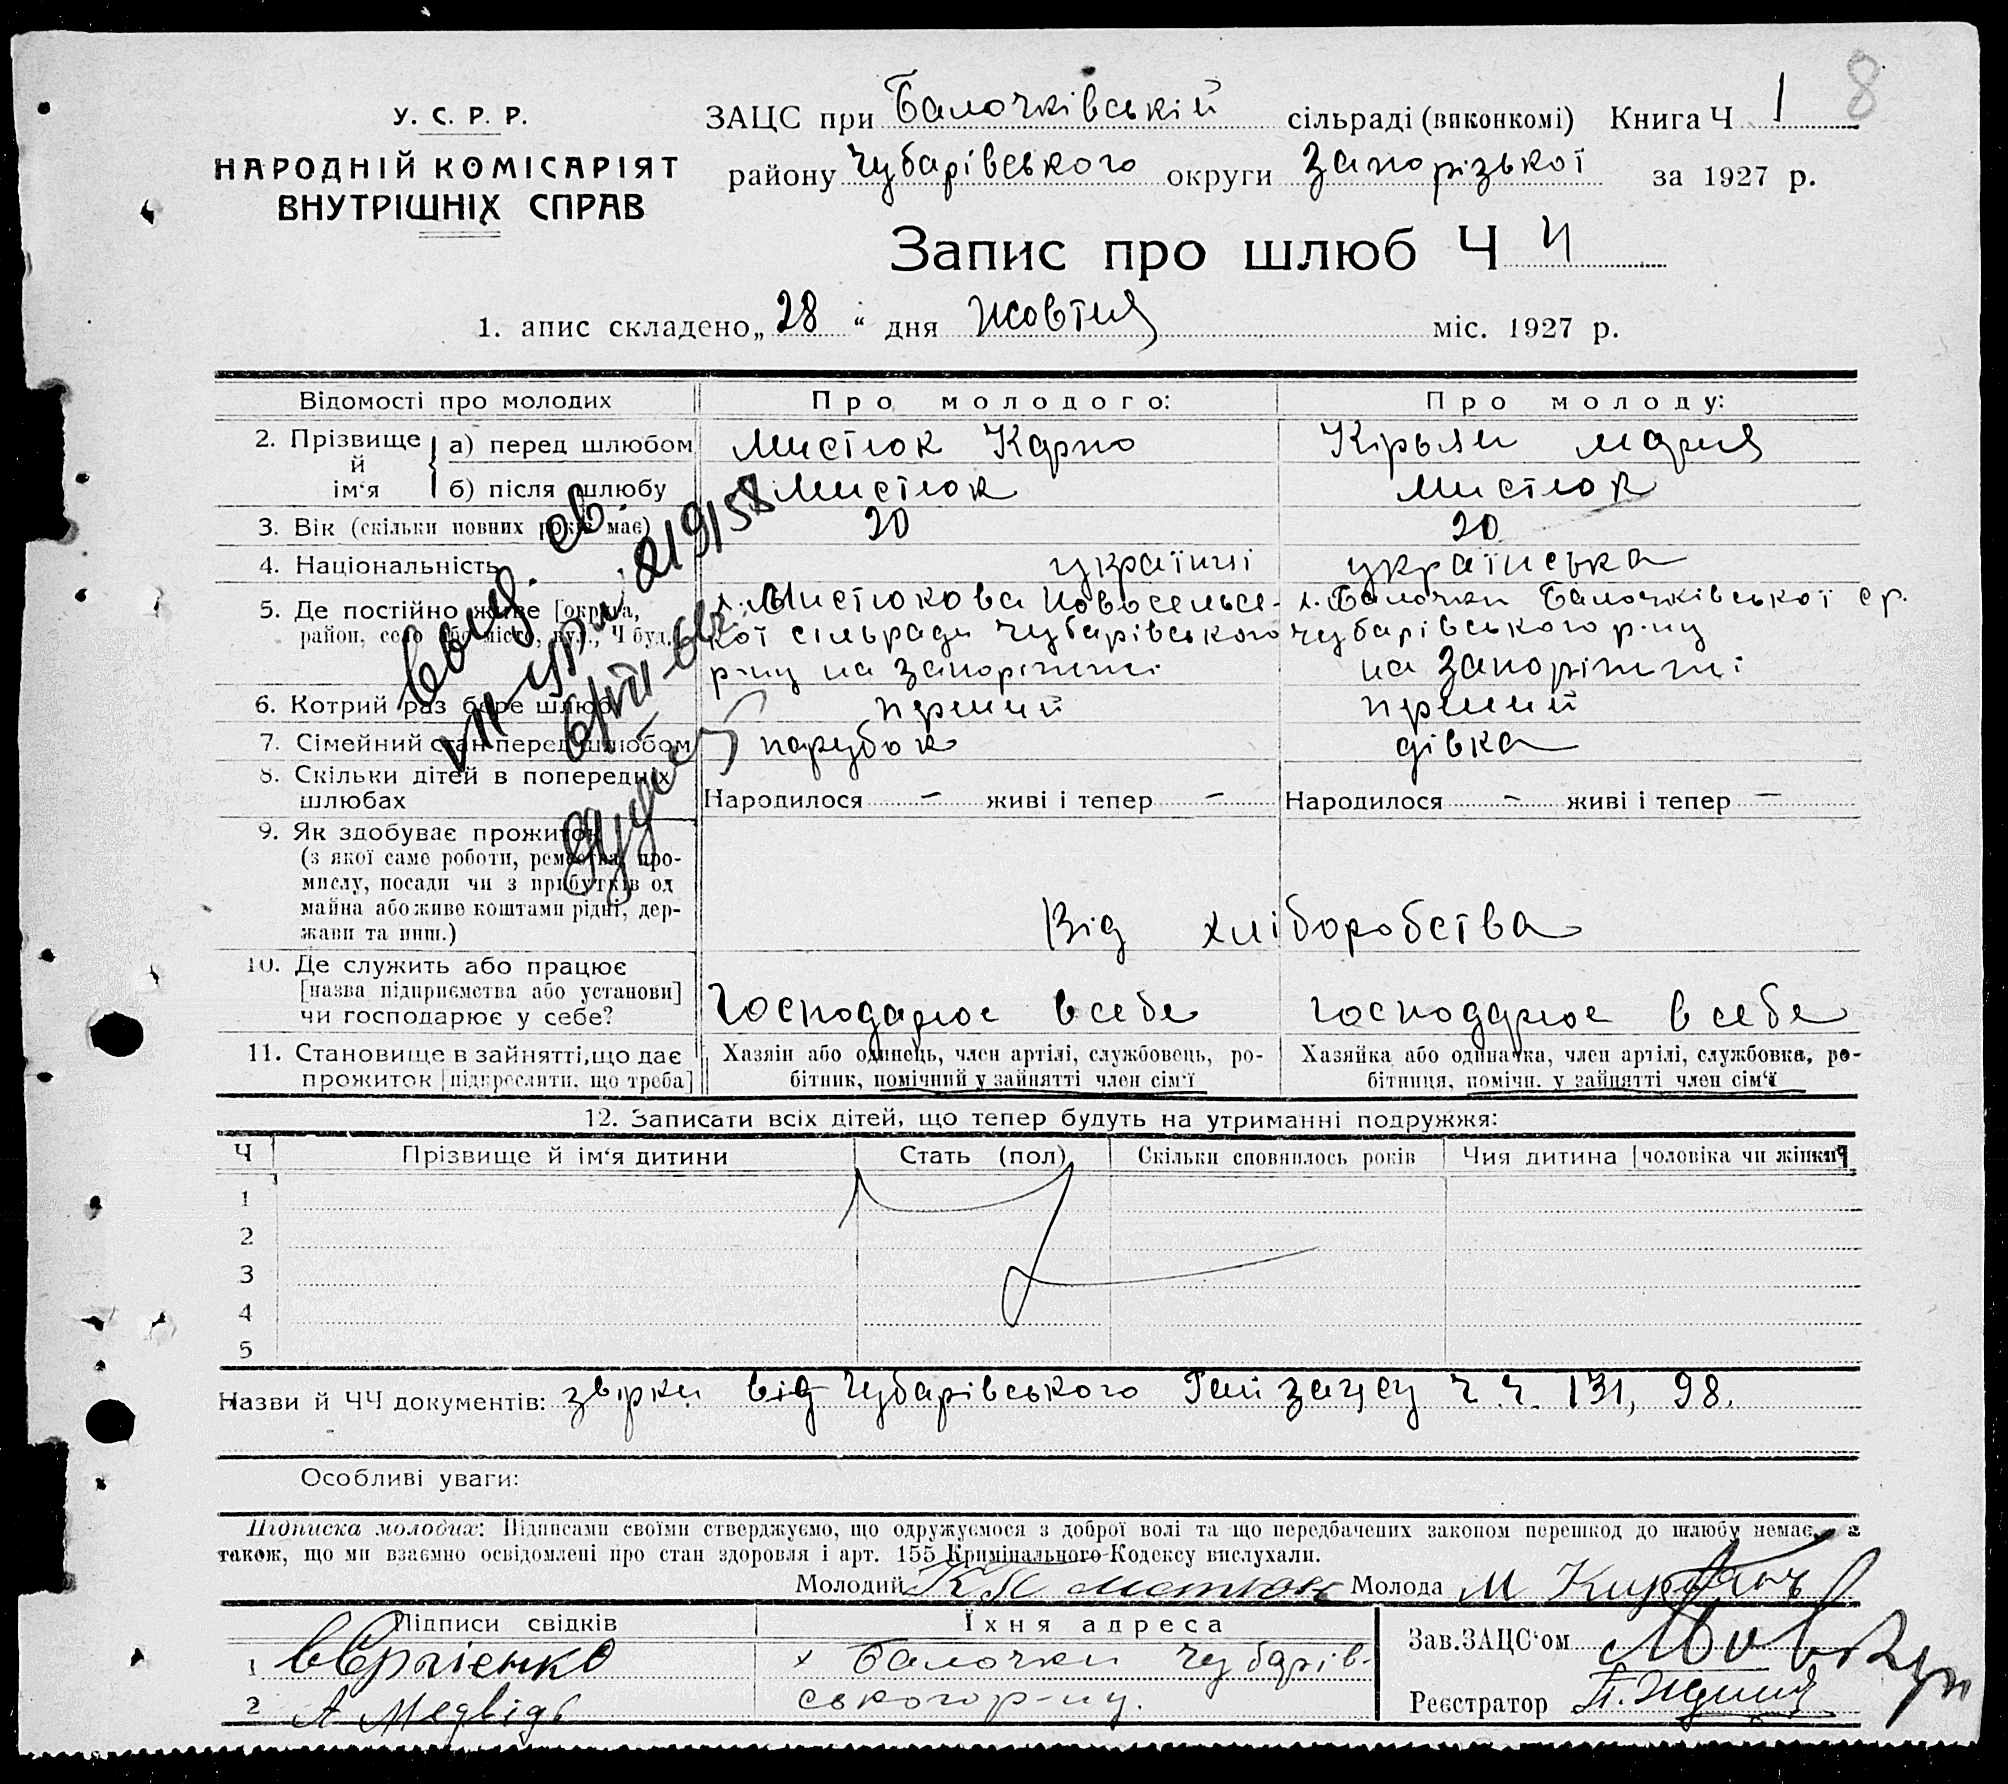 8
У. С. Р. Р.
НАРОДНІЙ КОМІСАРІЯТ
ВНУТРІШНІХ СПРАВ
ЗАЦС при Балочківській сільраді (виконкомі) Книга Ч 1
району Чубарівського округи Запорізької за 1927 р.
Запис про шлюб Ч 4
1. апис складено „28“ дня жовтня міс. 1927 р.
Відомості про молодих Про молодого: Про молоду:
2. Прізвище й ім‘я
а) перед шлюбом Мистюк Карпо Кірьян Мария
б) після шлюбу Мистюк Мистюк
3. Вік (скільки повних років має) 20 20
4. Національність українці українська
5. Де постійно живе [округа, х. Мистюкова Новосельсь- х. Балочки Балочківської ср.
район, село або місто, вул., Ч буд. кої сільради Чубарівського Чубарівського р-ну
р-ну на Запоріжжі на Запоріжжі
6. Котрий раз бере шлюб перший перший
7. Сімейний стан перед шлюбом парубок дівка
8. Скільки дітей в попередніх
шлюбах Народилося – живі і тепер – Народилося – живі і тепер –
9. Як здобуває прожиток
(з якої саме роботи, ремества, про-
мислу, посади чи з прибутків од
майна або живе коштами рідні, дер-
жави та инш.) Від хліборобства
10. Де служить або працює
[назва підприємства або установи]
чи господарює у себе? Господарює в себе господарює в себе
11. Становище в зайнятті, що дає Хазяїн або одинець, член артілі, службовець, ро- Хазяйка або одиначка, член артілі, службовка, ро-
прожиток [підкреслити, що треба] бітник, помічний у зайнятті член сім‘ї бітниця, помічн. у зайнятті член сім‘ї
12. Записати всіх дітей, що тепер будуть на утриманні подружжя:
Ч Прізвище й ім‘я дитини Стать (пол) Скільки сповнилось років Чия дитина [чоловіка чи жінки]
1
2
3
4
5
Назви й ЧЧ документів: звірки від Чубарівського Рай зацсу ч.ч. 131, 98.
Особливі уваги:
Підписка молодих: Підписами своїми стверджуємо, що одружуємося з доброї волі та що передбачених законом перешкод до шлюбу немає, а
також, що ми взаємно освідомлені про стан здоровля і арт. 155 Кримінального Кодексу вислухали.
Молодий Молода М
Підписи свідків Їхня адреса Зав. ЗАЦС‘ом
1 х Балочки Чубарів-
2 А Медвідь ського р-ну. Реєстратор П.